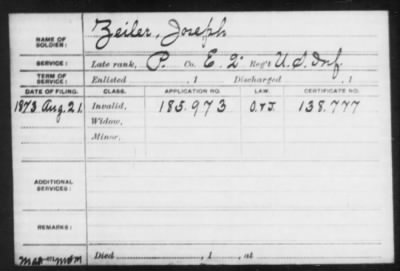 NAME OF SOLDIER: Zeiler, Joseph
SERVICE: Late rank, P. Co. E. 2" Reg't U.S. Inf.
TERM OF SERVICE: Enlisted , 1 Discharged , 1
DATE OF FILING. CLASS. APPLICATION NO. LAW. CERTIFICATE NO.
1873 Aug. 21. Invalid, 185.973 138.777
Widow,
Minor,
ADDITIONAL SERVICES:
REMARKS:
Died , 1 , at